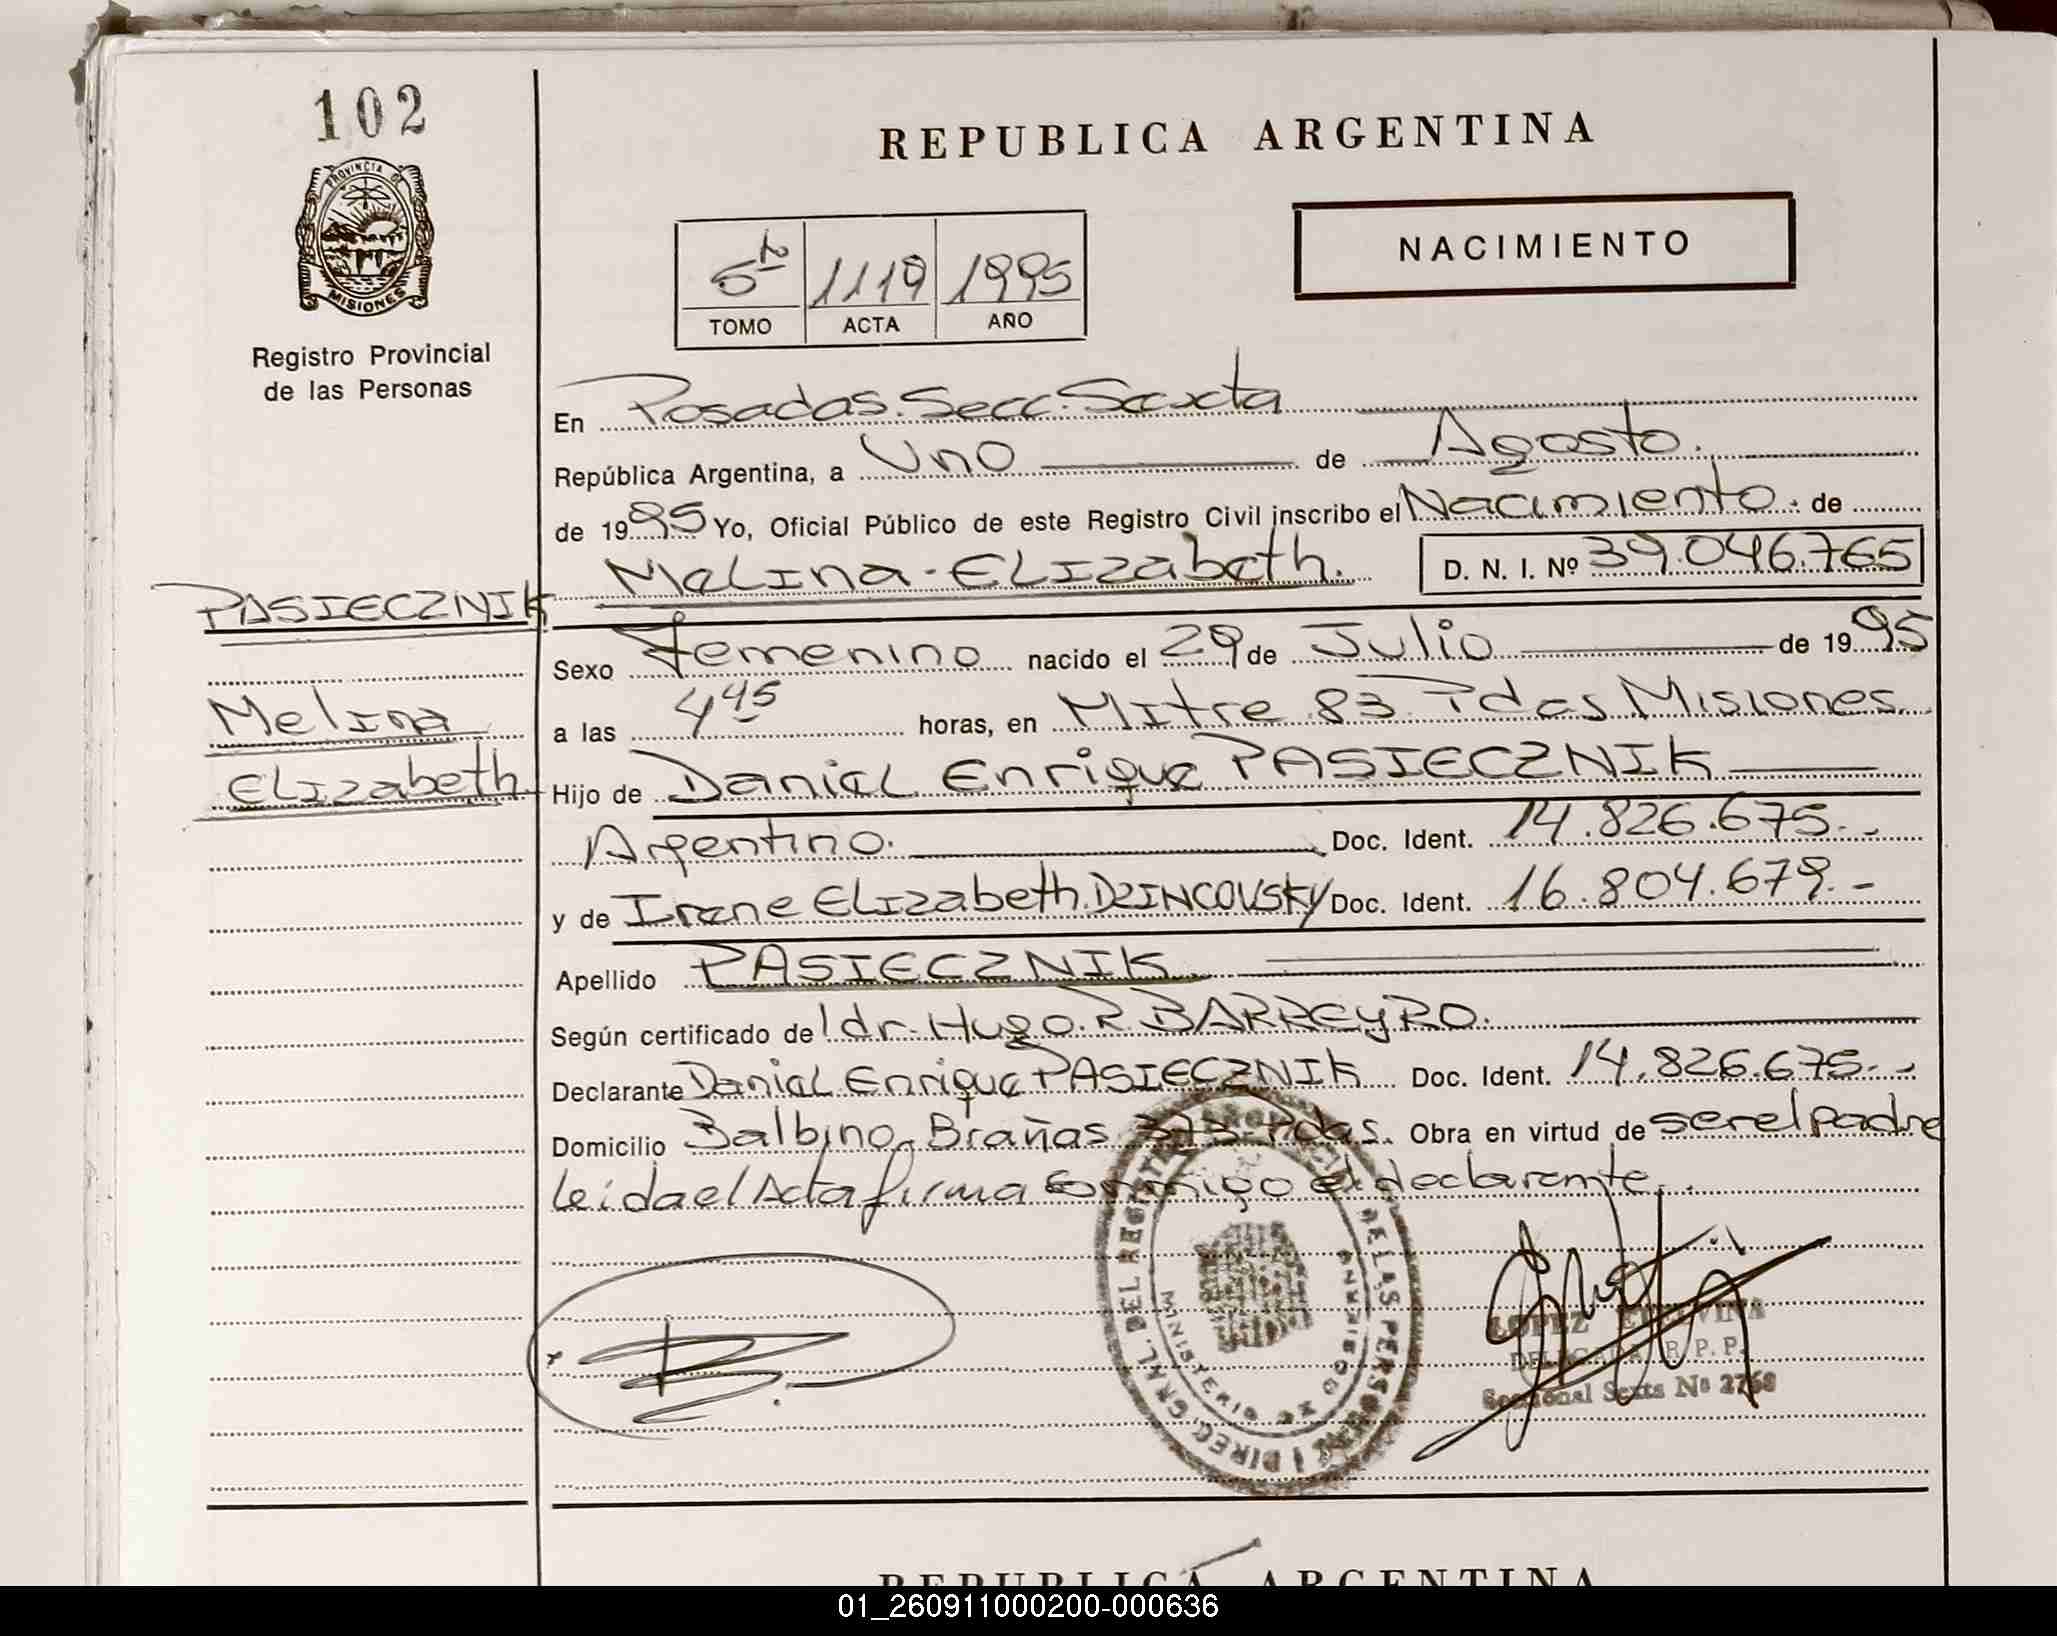 102
PROVINCIA DE
MISIONES
Registro Provincial
de las Personas
REPUBLICA ARGENTINA
NACIMIENTO
5to 1119 1995
TOMO ACTA AÑO
En Posadas. Secc. Sexta
República Argentina, a Uno de Agosto.
de 1995 Yo, Oficial Público de este Registro Civil inscribo el Nacimiento. de
Melina Elizabeth. D. N. I. Nº 39.046.765
PASIECZNIK
Melina
Elizabeth
Sexo Femenino nacido el 29 de Julio de 1995
a las 4 45 horas, en Mitre 83 Pdas Misiones
Hijo de Daniel Enrique PASIECZNIK
Argentino. Doc. Ident. 14.826.675.-
y de Irene Elizabeth DZINCOVSKY Doc. Ident. 16.804.679.-
Apellido PASIECZNIK
Según certificado de dr. Hugo R BARREYRO.
Declarante Daniel Enrique PASIECZNIK Doc. Ident. 14.826.675.-
Domicilio Balbino Brañas 373 Pdas. Obra en virtud de ser el padre
leida el Acta firma conmigo el declarante.
DIREC. GRAL. DEL REGISTRO PROVINCIAL DE LAS PERSONAS
MINISTERIO DE GOBIERNO
LOPEZ ETELVINA
DELEGADA R. P. P.
Seccional Sexta Nº 2768
REPUBLICA ARGENTINA
01_260911000200-000636